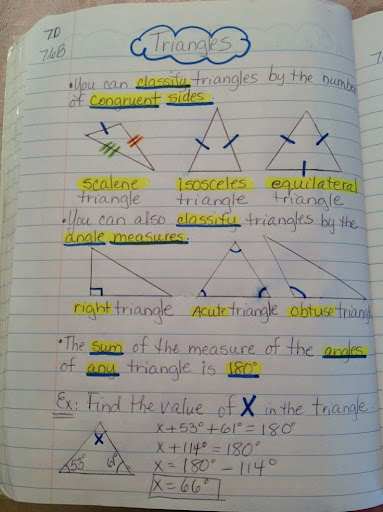 7D
7.6B
Triangles
•You can classify triangles by the number
of congruent sides.
scalene triangle
isosceles triangle
equilateral triangle
•You can also classify triangles by the
angle measures.
right triangle
Acute triangle
obtuse triangle
•The sum of the measure of the angles
of any triangle is 180°
Ex: Find the value of X in the triangle.
X
53°
61°
x+53°+61°=180°
x+114°=180°
x=180°-114°
x=66°